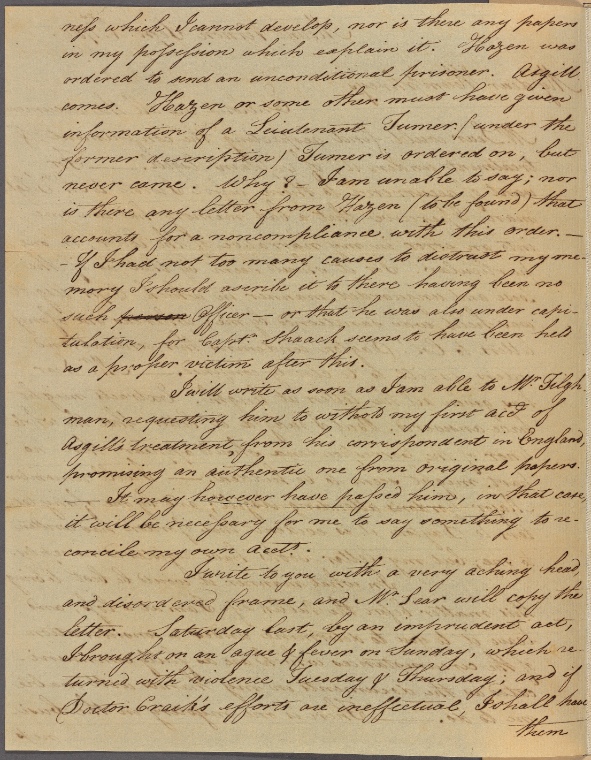 ness which I cannot develop, nor is there any papers
in my possession which explain it. Hazen was
ordered to send an unconditional prisoner. Asgill
comes. Hazen or some other must have given
information of a Leiutenant Turner (under the
former description) Turner is ordered on, but
never came. Why? – I am unable to say; nor
is there any letter from Hazen (to be found) that
accounts for a noncompliance with this order. –
– If I had not too many causes to distrust my me-
mory I should ascribe it to there having been no
such person Officer – or that he was also under capi-
tulation, for Capt. Shaack seems to have been held
as a proper victim after this.
I will write as soon as I am able to Mr. Tilgh
man, requesting him to withold my first acct of
Asgill's treatment, from his correspondent in England,
promising an authentic one from original papers.
– It may however have passed him, in that case,
it will be necessary for me to say something to re-
concile my own acct.
I write to you with a very aching head,
and disordered frame, and Mr. Lear will copy the
letter. Saturday last, by an imprudent act,
I brought on an ague & fever on Sunday, which re-
turned with violence Tuesday & Thursday; and if
Doctor Craik's efforts are ineffectual, I shall have
them